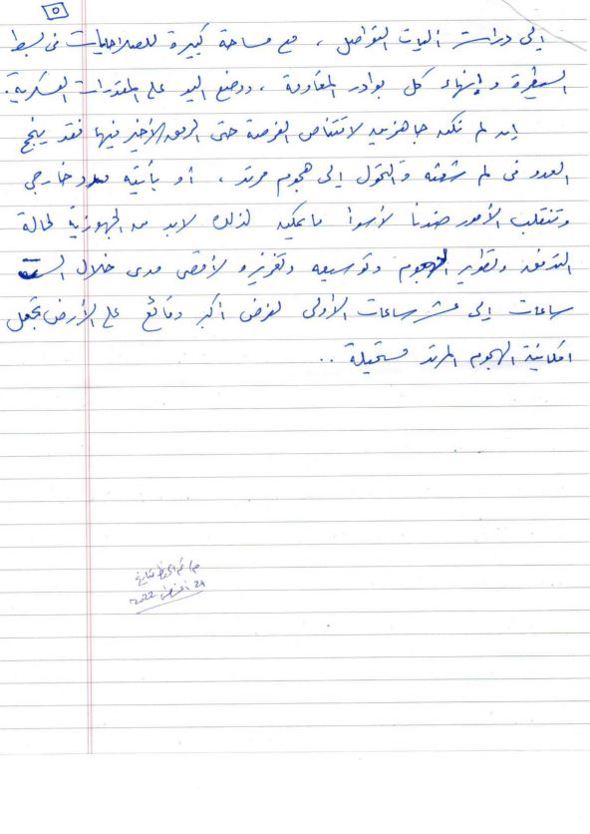 ٥
إلى دراسة آليات التواصل ، مع مساحة كبيرة للصلاحيات في بسط
السيطرة وإنهاء كل بوادر المقاومة ، ووضع اليد على المقدرات العسكرية.
إن لم نكن جاهزين لاقتناص الفرصة حتى الرمق الأخير فيها فقد ينجح
العدو في لم شعثه والتحول إلى هجوم مرتد ، أو يأتيه مدد خارجي
وتنقلب الأمور ضدنا لأسوأ ما يمكن لذلك لابد من الجهوزية لحالة
التدفق وتطوير الهجوم وتوسيعه وتعزيزه لأقصى مدى خلال الست
ساعات إلى عشر ساعات الأولى لفرض أكبر وقائع على الأرض تجعل
امكانية الهجوم المرتد مستحيلة ..
2022